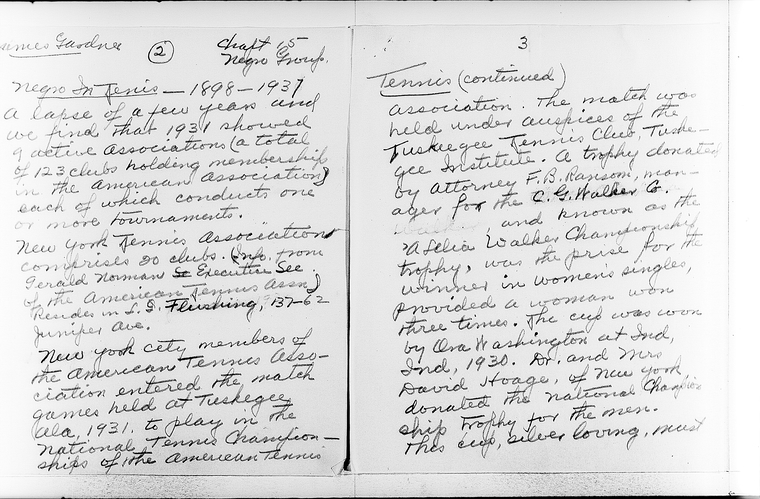 James Gardner
2
Chapt 15
Negro Group.
Negro In Tenis — 1898 - 1937
a lapse of a few years and
we find that 1931 showed
9 active Associations (a total
of 123 clubs holding membership
in the American Association)
each of which conducts one
or more tournaments.
New York Tennis Association
comprises 20 clubs. (Info. from
Gerald Norman Executive Sec.
of the American Tennis Assn)
Resides in L. I. Flushing, 137-62
Juniper Ave.
New York city members of
the American Tennis Asso-
ciation entered the match
games held at Tuskegee,
Ala, 1931. to play in the
National Tennis Champion-
ships of the American Tennis
3
Tennis (continued)
association. The match was
held under auspices of the
Tuskeegee Tennis Club, Tuske-
gee Institute. A trophy donated
by Attorney F.B. Ransom, man-
ager for the C. G. Walker Co.
, and known as the
"A'Lelia Walker Championship
trophy, was the prise for the
winner in women's singles,
provided a woman won
three times. The cup was won
by Ora Washington at Ind,
Ind, 1930. Dr. and Mrs
David Hoage, of New York
donated the national Champion
ship trophy for the men.
This cup, silver loving, must